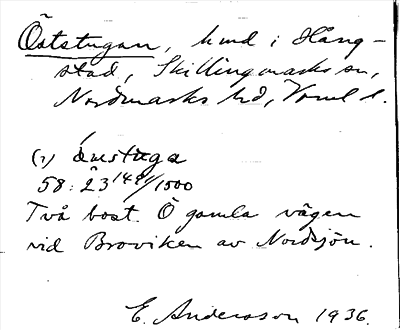 Öststugan, hmd i Häng-
stad, Skillingmarks sn,
Nordmarks hd, Vrml l.
(1) ǻustuga
58:23 149/1500
Två bost. Ö gamla vägen
vid Broviken av Nordsjön.
E. Anderson 1936.